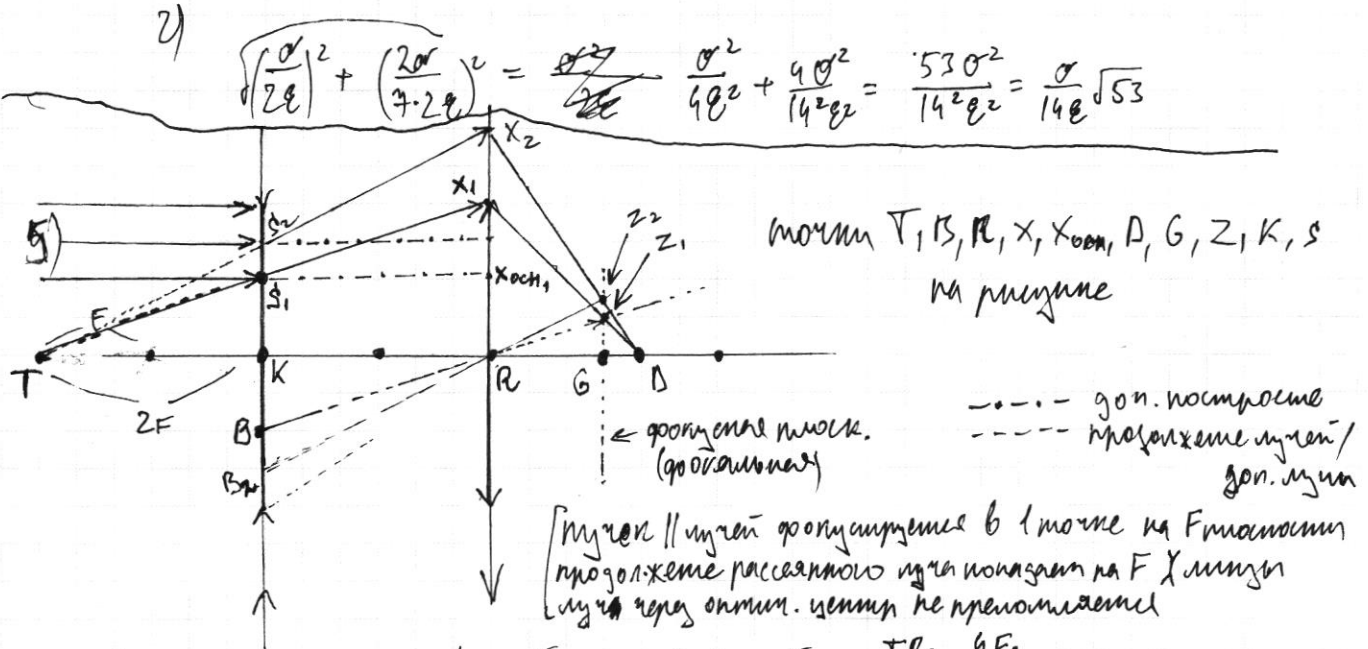 г)
√((σ/2q)² + (2σ/(7·2q))²) = σ²/4q² + 4σ²/14²q² = 53σ²/14²q² = σ/14q √53
X₂
X₁
S₂
Z₂
Z₁
5)
точки T, B, R, X, Xосн, D, G, Z, K, S
на рисунке
Xосн₁
S₁
F
T
K
R
G
D
2F
B
← фокусная плоск.
(фокальная)
—·—·— доп. построение
- - - - - продолжение лучей/
доп. лучи
пучок || лучей фокусируется в 1 точке на F плоскости
продолжение рассеянного луча попадает на F
линзы
луч через оптич. центр не преломляется